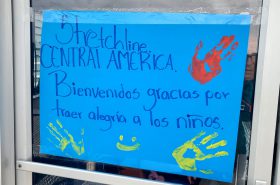 Stretchline
CENTRAL AMERICA.
Bienvenidos gracias por
traer alegria a los niños.